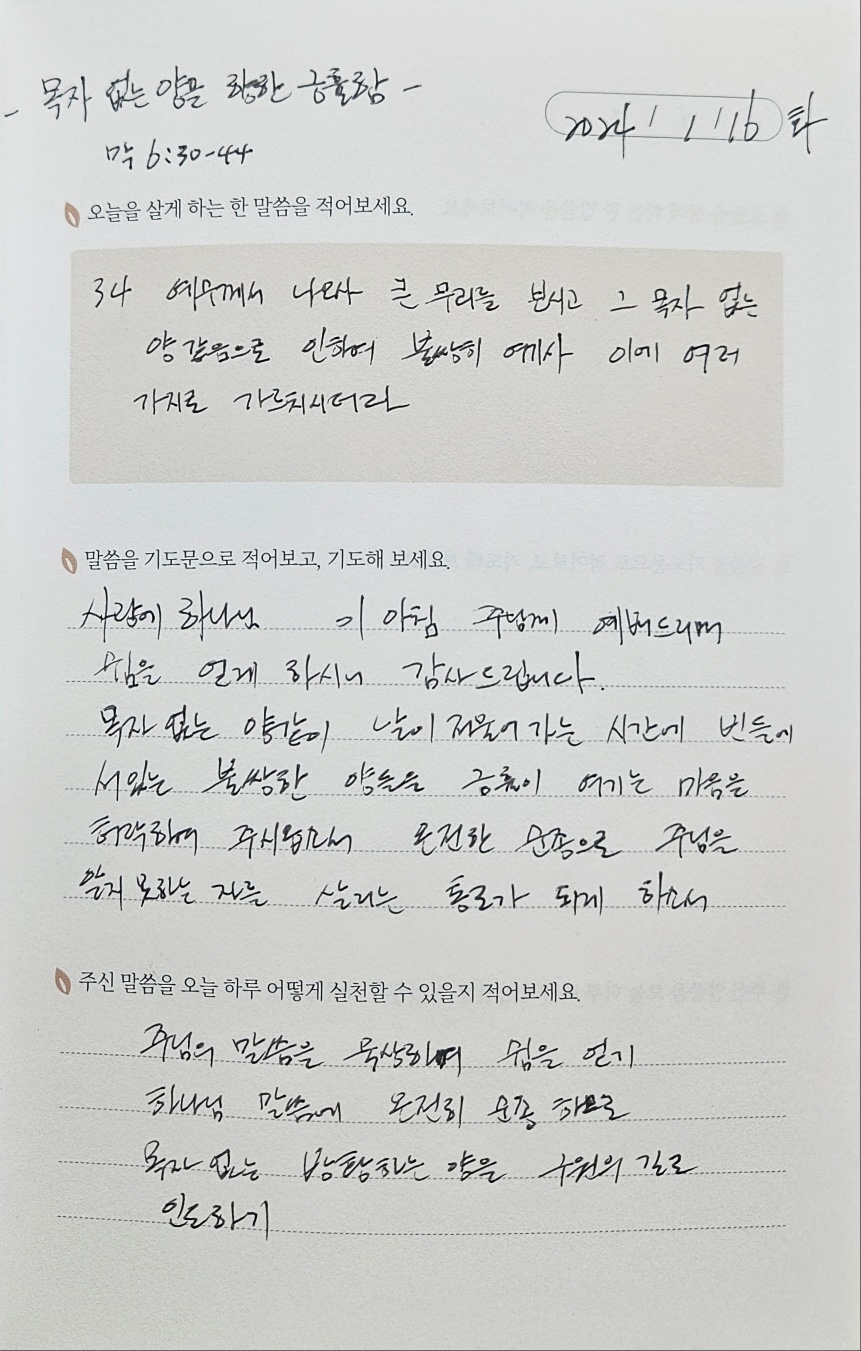 - 목자 없는 양을 향한 긍휼함 -
2024 / 1 / 16 화
막 6:30-44
오늘을 살게 하는 한 말씀을 적어보세요.
34 예수께서 나오사 큰 무리를 보시고 그 목자 없는
양 같음으로 인하여 불쌍히 여기사 이에 여러
가지로 가르치시더라
말씀을 기도문으로 적어보고, 기도해 보세요.
사랑에 하나님 이 아침 주님께 예배드리며
쉼을 얻게 하시니 감사드립니다.
목자 없는 양같이 날이 저물어 가는 시간에 빈들에
서있는 불쌍한 양들을 긍휼이 여기는 마음을
허락하여 주시옵소서 온전한 순종으로 주님을
알지 못하는 자를 살리는 통로가 되게 하소서
주신 말씀을 오늘 하루 어떻게 실천할 수 있을지 적어보세요.
주님의 말씀을 묵상하며 쉼을 얻기
하나님 말씀에 온전히 순종 하므로
목자 없는 방황하는 양을 구원의 길로
인도하기